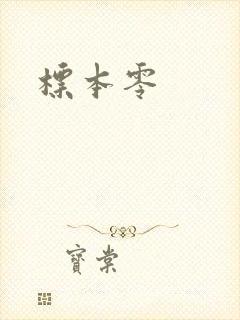 標本零
寶棠